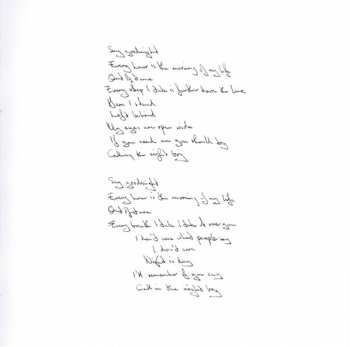 Say goodnight
Every hour is the morning of my life
Every step I take is further down the line
Here I stand
Left behind
My eyes are open wide
If you need me you should

Say goodnight
Every hour is the morning of my life
Every breath I take I take
I don't care what people say
I don't care
Night is day
I'll remember if you cry
Call in the night boy